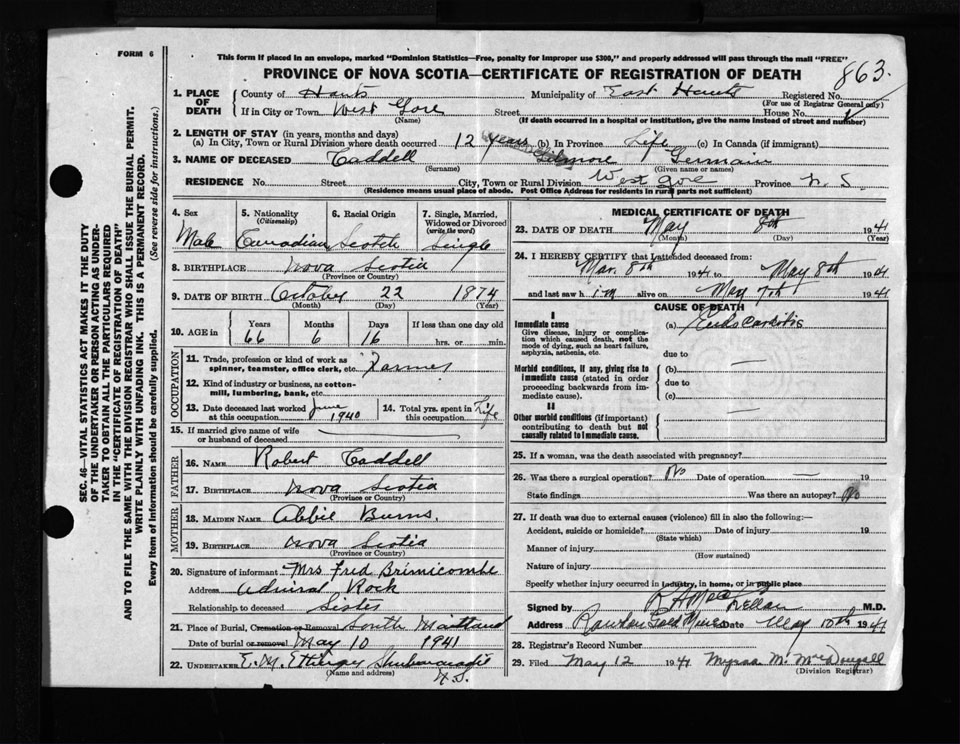 FORM 6
This form if placed in an envelope, marked "Dominion Statistics—Free, penalty for improper use $300," and properly addressed will pass through the mail "FREE"
PROVINCE OF NOVA SCOTIA—CERTIFICATE OF REGISTRATION OF DEATH
863
SEC. 46—VITAL STATISTICS ACT MAKES IT THE DUTY
OF THE UNDERTAKER OR PERSON ACTING AS UNDER-
TAKER TO OBTAIN ALL THE PARTICULARS REQUIRED
IN THE "CERTIFICATE OF REGISTRATION OF DEATH"
AND TO FILE THE SAME WITH THE DIVISION REGISTRAR WHO SHALL ISSUE THE BURIAL PERMIT.
WRITE PLAINLY WITH UNFADING INK. THIS IS A PERMANENT RECORD.
Every item of information should be carefully supplied. (See reverse side for instructions.)
1. PLACE OF DEATH County of Hants Municipality of East Hants Registered No.
(For use of Registrar General only)
If in City or Town West Gore Street House No.
(Name) (If death occurred in a hospital or institution, give the name instead of street and number)
2. LENGTH OF STAY (in years, months and days)
(a) In City, Town or Rural Division where death occurred 12 years (b) In Province Life (c) In Canada (if immigrant)
3. NAME OF DECEASED Caddell Germain
(Surname) (Given name or names)
RESIDENCE No. Street City, Town or Rural Division West Gore Province N. S.
(Residence means usual place of abode. Post Office Address for residents in rural parts not sufficient)
4. Sex Male
5. Nationality (Citizenship) Canadian
6. Racial Origin Scotch
7. Single, Married, Widowed or Divorced (write the word) Single
8. BIRTHPLACE Nova Scotia
(Province or Country)
9. DATE OF BIRTH October 22 1874
(Month) (Day) (Year)
10. AGE in Years Months Days If less than one day old
66 6 16 hrs. or min.
OCCUPATION
11. Trade, profession or kind of work as spinner, teamster, office clerk, etc. Farmer
12. Kind of industry or business, as cotton-mill, lumbering, bank, etc.
13. Date deceased last worked at this occupation June 1940
14. Total yrs. spent in this occupation Life
15. If married give name of wife or husband of deceased
FATHER
16. NAME Robert Caddell
17. BIRTHPLACE Nova Scotia
(Province or Country)
MOTHER
18. MAIDEN NAME Abbie Burns.
19. BIRTHPLACE Nova Scotia
(Province or Country)
20. Signature of informant Mrs Fred Brimicombe
Address Admiral Rock
Relationship to deceased Sister
21. Place of Burial, Cremation or Removal South Maitland
Date of burial or removal May 10 1941
22. UNDERTAKER E. M. Ettinger Shubenacadie
(Name and address) N. S.
MEDICAL CERTIFICATE OF DEATH
23. DATE OF DEATH May 8th 1941
(Month) (Day) (Year)
24. I HEREBY CERTIFY that I attended deceased from:
Mar. 8th 1941 to May 8th 1941
and last saw him alive on May 7th 1941
CAUSE OF DEATH
I
Immediate cause (a)
Give disease, injury or complication which caused death, not the mode of dying, such as heart failure, asphyxia, asthenia, etc.
due to
Morbid conditions, if any, giving rise to immediate cause (stated in order proceeding backwards from immediate cause). (b)
due to
(c)
II
Other morbid conditions (if important) contributing to death but not causally related to immediate cause.
25. If a woman, was the death associated with pregnancy?
26. Was there a surgical operation? No Date of operation — 19
State findings Was there an autopsy? No
27. If death was due to external causes (violence) fill in also the following:—
Accident, suicide or homicide? Date of injury 19
(State which)
Manner of injury
(How sustained)
Nature of injury
Specify whether injury occurred in industry, in home, or in public place
Signed by M.D.
Address Rawdon Gold Mines Date May 10th 1941
28. Registrar's Record Number
29. Filed May 12 1941 Myrna M. McDougall
(Division Registrar)